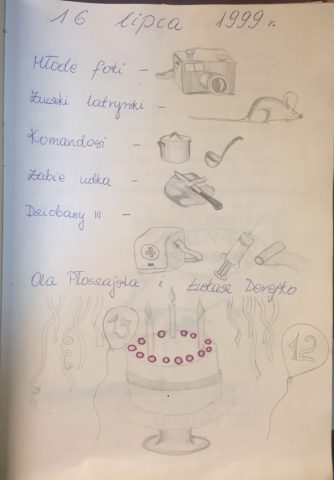 16 lipca 1999 r.
Młode foki –
Żuczki latrynki –
Komandosi –
Żabie udka –
Dziobasy III –
Ola Płoszajska i Łukasz Derejko
13
12